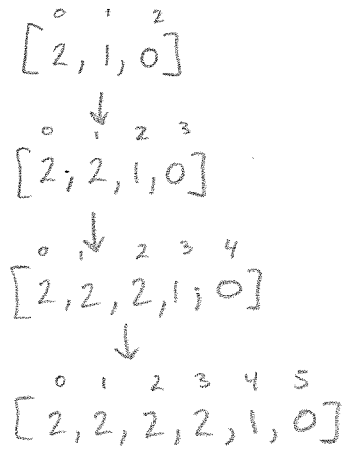 0 1 2
[2, 1, 0]
↓
0 1 2 3
[2, 2, 1, 0]
↓
0 1 2 3 4
[2, 2, 2, 1, 0]
↓
0 1 2 3 4 5
[2, 2, 2, 2, 1, 0]